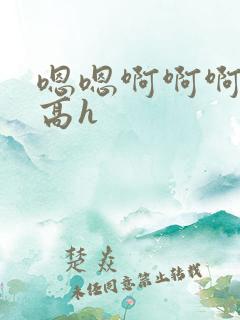 嗯嗯啊啊啊
高h
楚焱
未经同意禁止转载